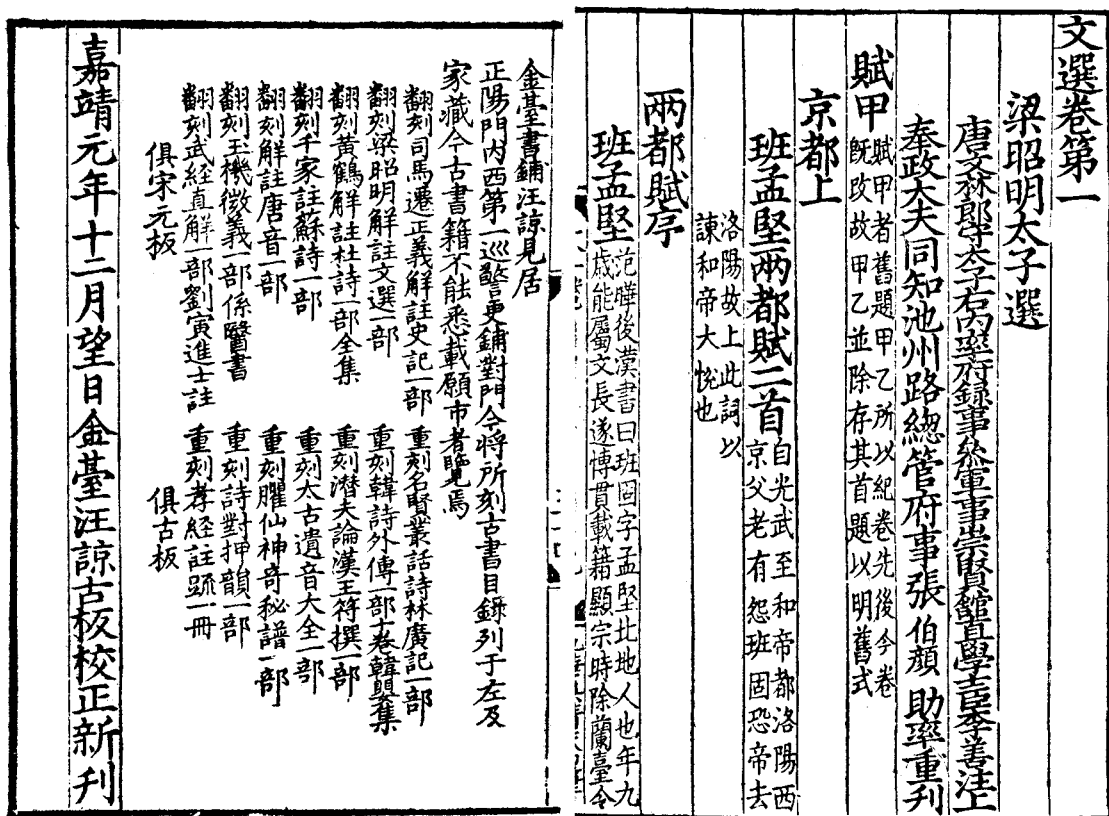 文選卷第一
梁昭明太子選
唐文林郎守太子右內率府錄事參軍事崇賢館直學士臣李善注上
奉政大夫同知池州路總管府事張伯顏助率重刊
賦甲賦甲者舊題甲乙所以紀卷先後今卷
既改故甲乙並除存其首題以明舊式
京都上
班孟堅兩都賦二首自光武至和帝都洛陽西
京父老有怨班固恐帝去
洛陽故上此詞以
諫和帝大悅也
兩都賦序
班孟堅范曄後漢書曰班固字孟堅北地人也年九
歲能屬文長遂博貫載籍顯宗時除蘭臺令
金臺書鋪汪諒見居
正陽門內西第一巡警更鋪對門今將所刻古書目錄列于左及
家藏今古書籍不能悉載願市者覽焉
翻刻司馬遷正義解註史記一部
重刻名賢叢話詩林廣記一部
翻刻梁昭明解註文選一部
重刻韓詩外傳一部十卷韓嬰集
翻刻黃鶴解註杜詩一部全集
重刻潛夫論漢王符撰一部
翻刻千家註蘇詩一部
重刻太古遺音大全一部
翻刻解註唐音一部
重刻臞仙神奇秘譜一部
翻刻玉機微義一部係醫書
重刻詩對押韻一部
翻刻武經直解一部劉寅進士註
重刻孝經註疏一冊
俱宋元板
俱古板
嘉靖元年十二月望日金臺汪諒古板校正新刊